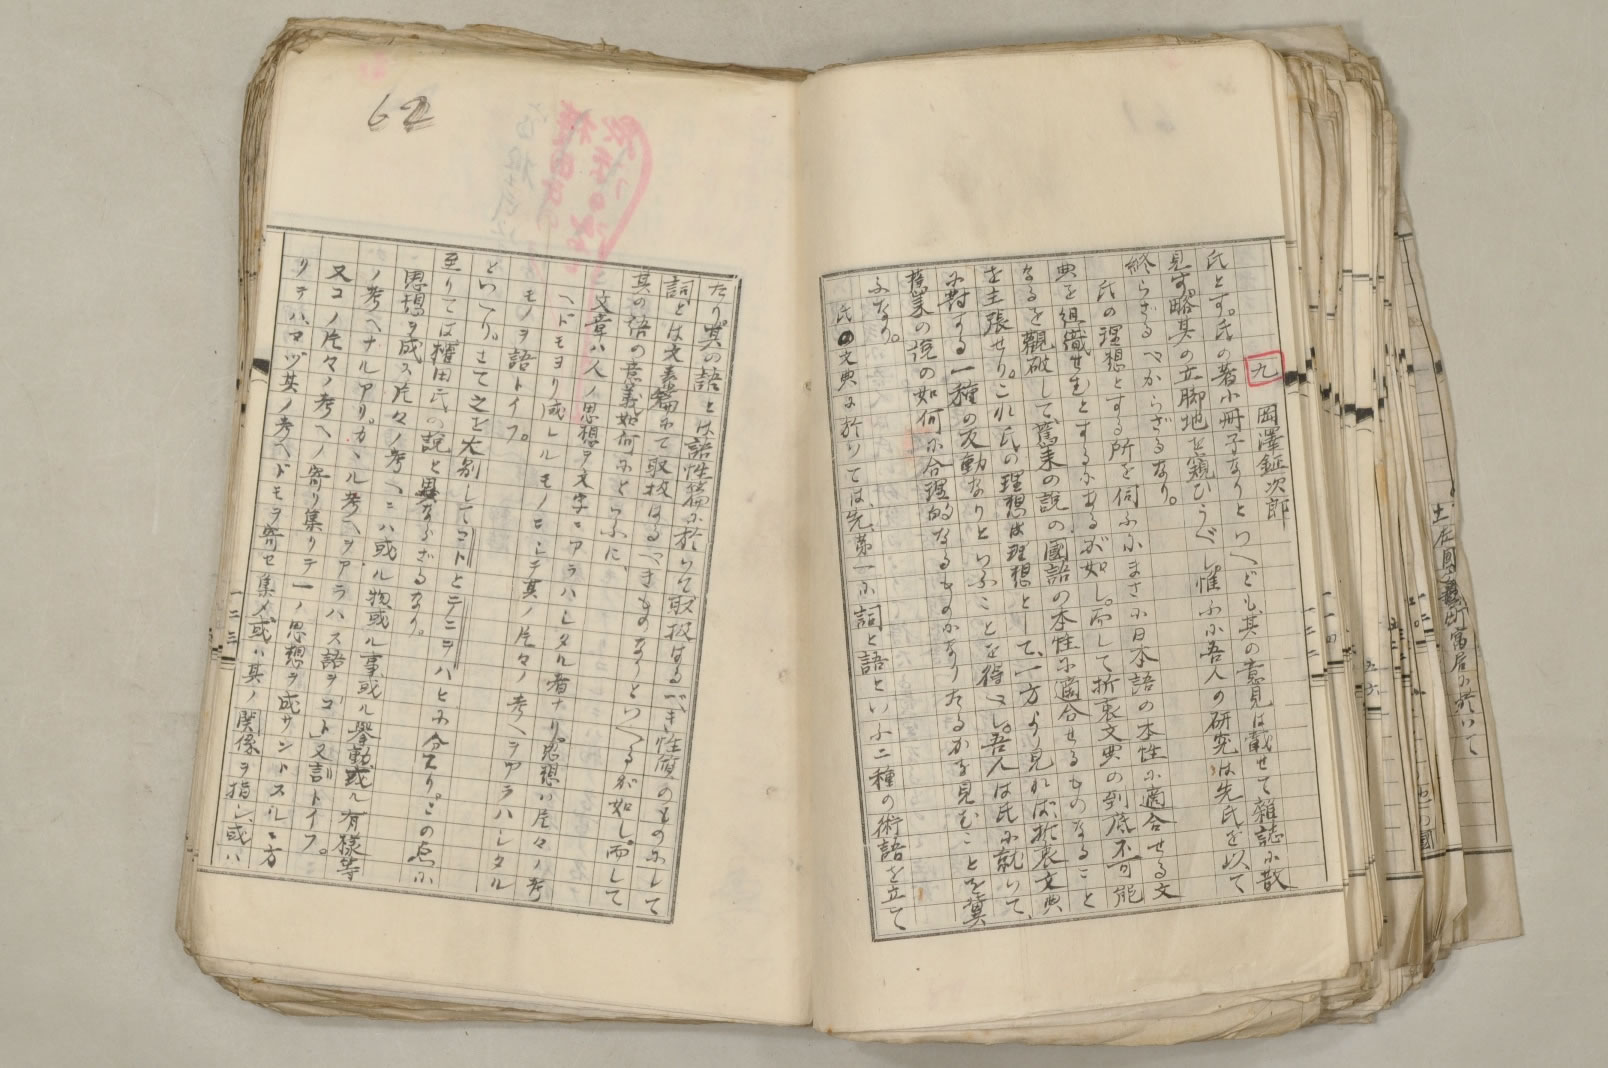 九
岡澤鉦次郎
氏とす。氏の著小冊子なりといへども其の意見は載せて雜誌に散
見す。略其の立脚地を窺ひうべし惟ふに吾人の研究は先氏を以て
終らざるべからざるなり。
氏の理想とする所を伺ふにまさに日本語の本性に適合せる文
典を組織せむとするにあるが如し。而して折衷文典の到底不可能
なるを觀破して、舊来の説の國語の本性に適合せるものなること
を主張せり。これ氏の理想は理想として、一方より見れば折衷文典
に對する一種の反動なりといふことを得べし。吾人は氏に就いて、
舊来の説の如何に合理的なるものになりたるかを見むことを冀
ふなり。
氏の文典に於いては、先第一に詞と語といふ二種の術語を立て
62
たり。其の語とは語性論に於いて取扱はるべき性質のものにして
詞とは文章篇にて取扱はるべきものなりといへるが如し。而して
其の語の意義如何にといふに、
文章ハ人ノ思想ヲ文字ニアラハシタル者ナリ。思想ハ片々ノ考
ヘドモヨリ成レルモノニシテ其ノ片々ノ考ヘヲアラハシタル
モノヲ語トイフ。
といへり。さて之を大別してコトとテニヲハとに分てり。この点に
至りては權田氏の説と異ならざるなり。
思想ヲ成ス片々ノ考ヘニハ或ル物或ル事或ル擧動或ル有樣等
ノ考ヘナルアリ。カヽル考ヘヲアラハス語ヲコト又言トイフ。
又コノ片々ノ考ヘノ寄リ集リテ一ノ思想ヲ成サントスルニ方
リテハマヅ其ノ考ヘドモヲ寄セ集メ或ハ其ノ關係ヲ指シ或ハ
一二三